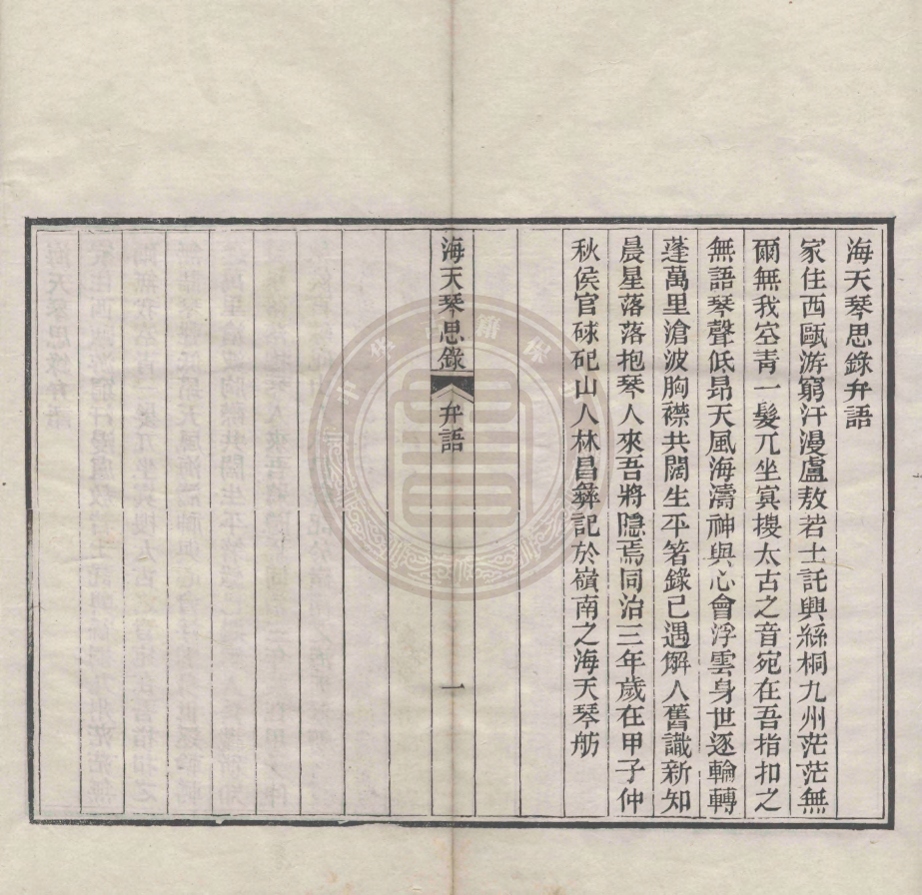 海天琴思錄弁語
家住西甌游窮汗漫盧敖若士託興絲桐九州茫茫無
爾無我空青一髮兀坐冥搜太古之音宛在吾指扣之
無語琴聲低昂天風海濤神與心會浮雲身世逐輪轉
蓬萬里滄波胸襟共闊生平箸錄已遇懈人舊識新知
晨星落落抱琴人來吾將隱焉同治三年歲在甲子仲
秋侯官𥐟砣山人林昌彝記於嶺南之海天琴舫
海天琴思錄 弁語 一